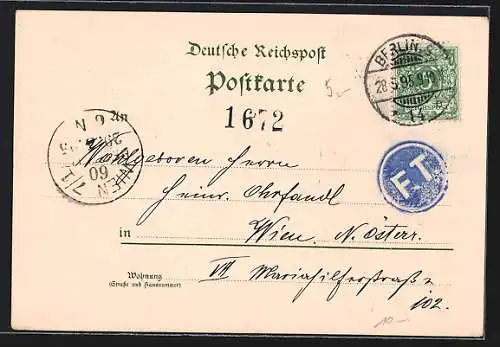 Deutsche Reichspost
Postkarte
5,-
BERLIN
1672
An
WIEN
60
7/1
6 N
FT
Wohlgeboren Herrn
Heinr. Ohrfandl
in Wien. N. Österr.
Wohnung
(Straße und Hausnummer)
VII Mariahilferstraße
102.
10-